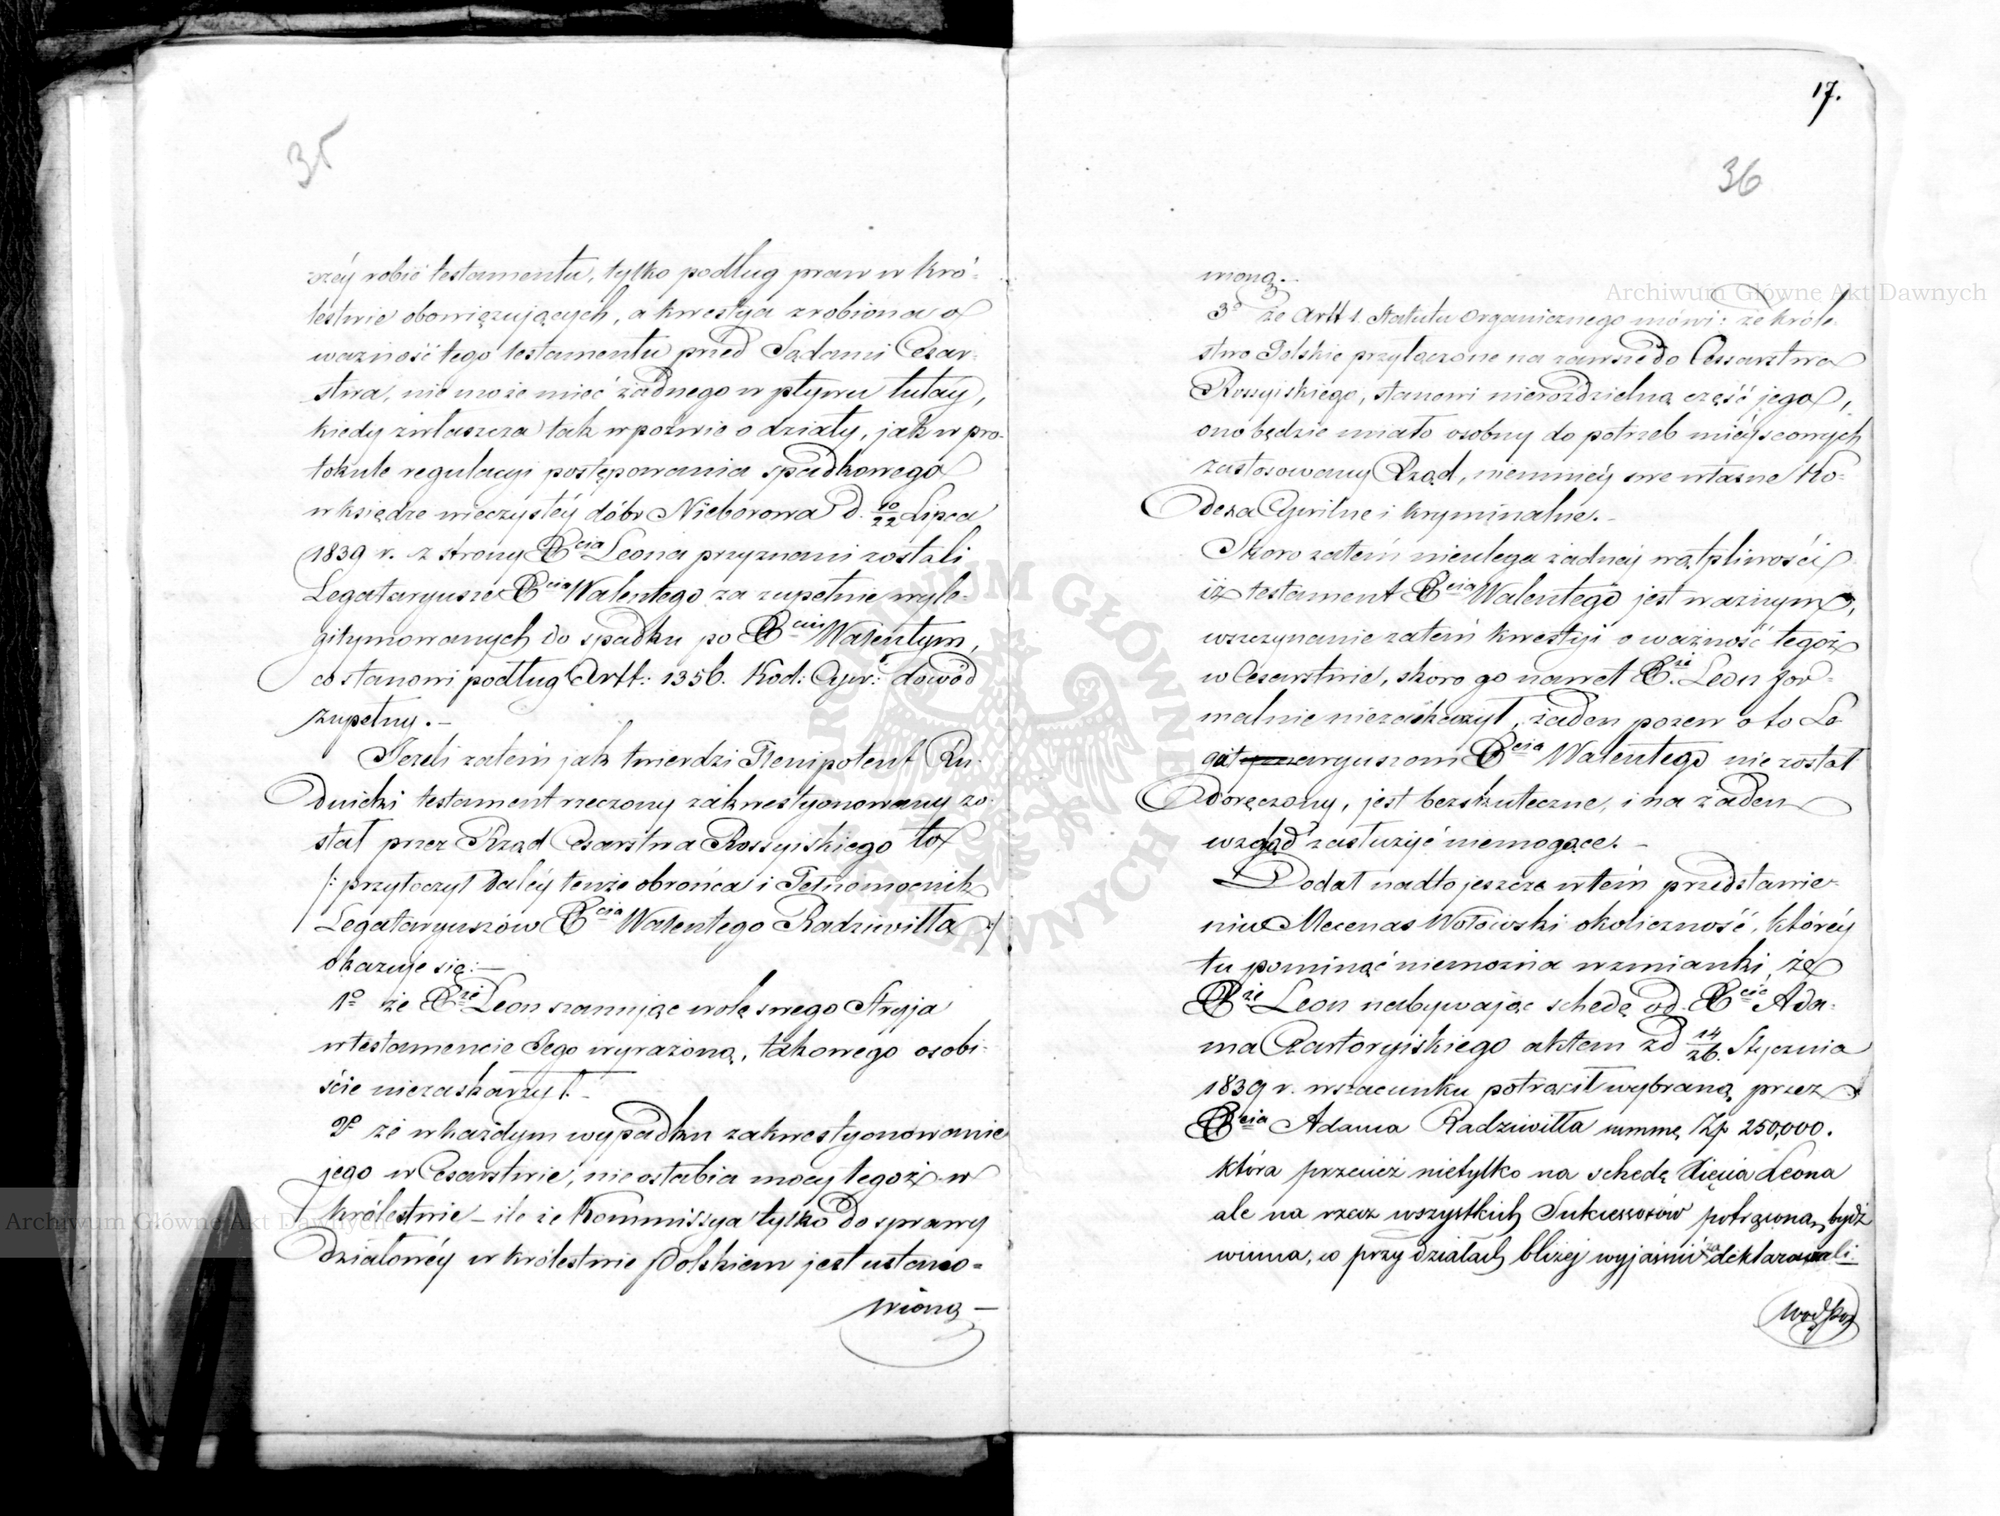 35
rzéy robić testamentu, tylko podług praw w Kró-
lestwie obowięzujących, a kwestya zrobiona o
ważność tego testamentu przed Sądami Cesar-
stwa, nie może mieć żadnego wpływu tutay,
kiedy zwłaszcza tak w pozwie o działy, jak w pro-
tokule regulacyi postępowania spadkowego
w księdze wieczystéy dóbr Nieborowa d. 10/22 Lipca
1839 r. z strony Xcia Leona przyznani zostali
Legataryusze Xcia Walentego za zupełnie wyle-
gitymowanych do spadku po Xciu Walentym,
co stanowi podług Artt: 1356. Kod: Cyw: dowód
zupełny. –
Jeżeli zatém jak twierdzi Plenipotent Ru-
dnicki testament rzeczony zakwestyonowany zo-
stał przez Rząd Cesarstwa Rossyiskiego to
/: przytoczył daléy tenże obrońca i Pełnomocnik
Legataryuszów Xcia Walentego Radziwiłła :/
okazuje się: –
1o że Xże Leon szanując wolę swego Stryja
w testamencie Jego wyrażoną, takowego osobi-
ście niezaskarżył. –
2o że w każdym wypadku zakwestyonowanie
jego w Cesarstwie, nie osłabia mocy tegoż w
Królestwie – ile że Kommissya tylko do sprawy
działowéy w Królestwie Polskiem jest ustano-
wioną –
17.
36
wioną. –
3o że Artt 1. Statutu Organicznego mówi: że Króle-
stwo Polskie przyłączone na zawsze do Cesarstwa
Rossyiskiego, stanowi nierozdzielną część jego,
ono będzie miało osobny do potrzeb mieyscowych
zastosowany Rząd, niemniéy swe własne Ko-
dexa Cywilne i kryminalne. –
Skoro zatém nieulega żadnéj wątpliwości
iż testament Xcia Walentego jest ważnym,
wszczynanie zatém kwestyi o ważność tegoż
w Cesarstwie, skoro go nawet Xże Leon for-
malnie niezaskarżył, żaden pozew o to Le-
gataryuszom Xcia Walentego nie został
doręczony, jest bezskuteczne, i na żaden
wzgląd zasłużyć niemogące. –
Dodał nadto jeszcze w tém przedstawie-
niu Mecenas Wołowski okoliczność, któréy
tu pominąć niemożna wzmianki, że
Xże Leon nabywając schedę od Xcie Ada-
ma Czartoryiskiego aktem z d 14/26. Stycznia
1839 r. w szacunku potrącił wybraną przez
Xcia Adama Radziwiłła summę Zp 250,000.
która przecież nietylko na schedę Xięcia Leona
ale na rzecz wszystkich Sukcessorów potrąconą bydź
winna, co przy działach bliżej wyjaśnić zadeklarowali
Archiwum Główne Akt Dawnych
Archiwum Główne Akt Dawnych
ARCHIWUM GŁÓWNE AKT DAWNYCH